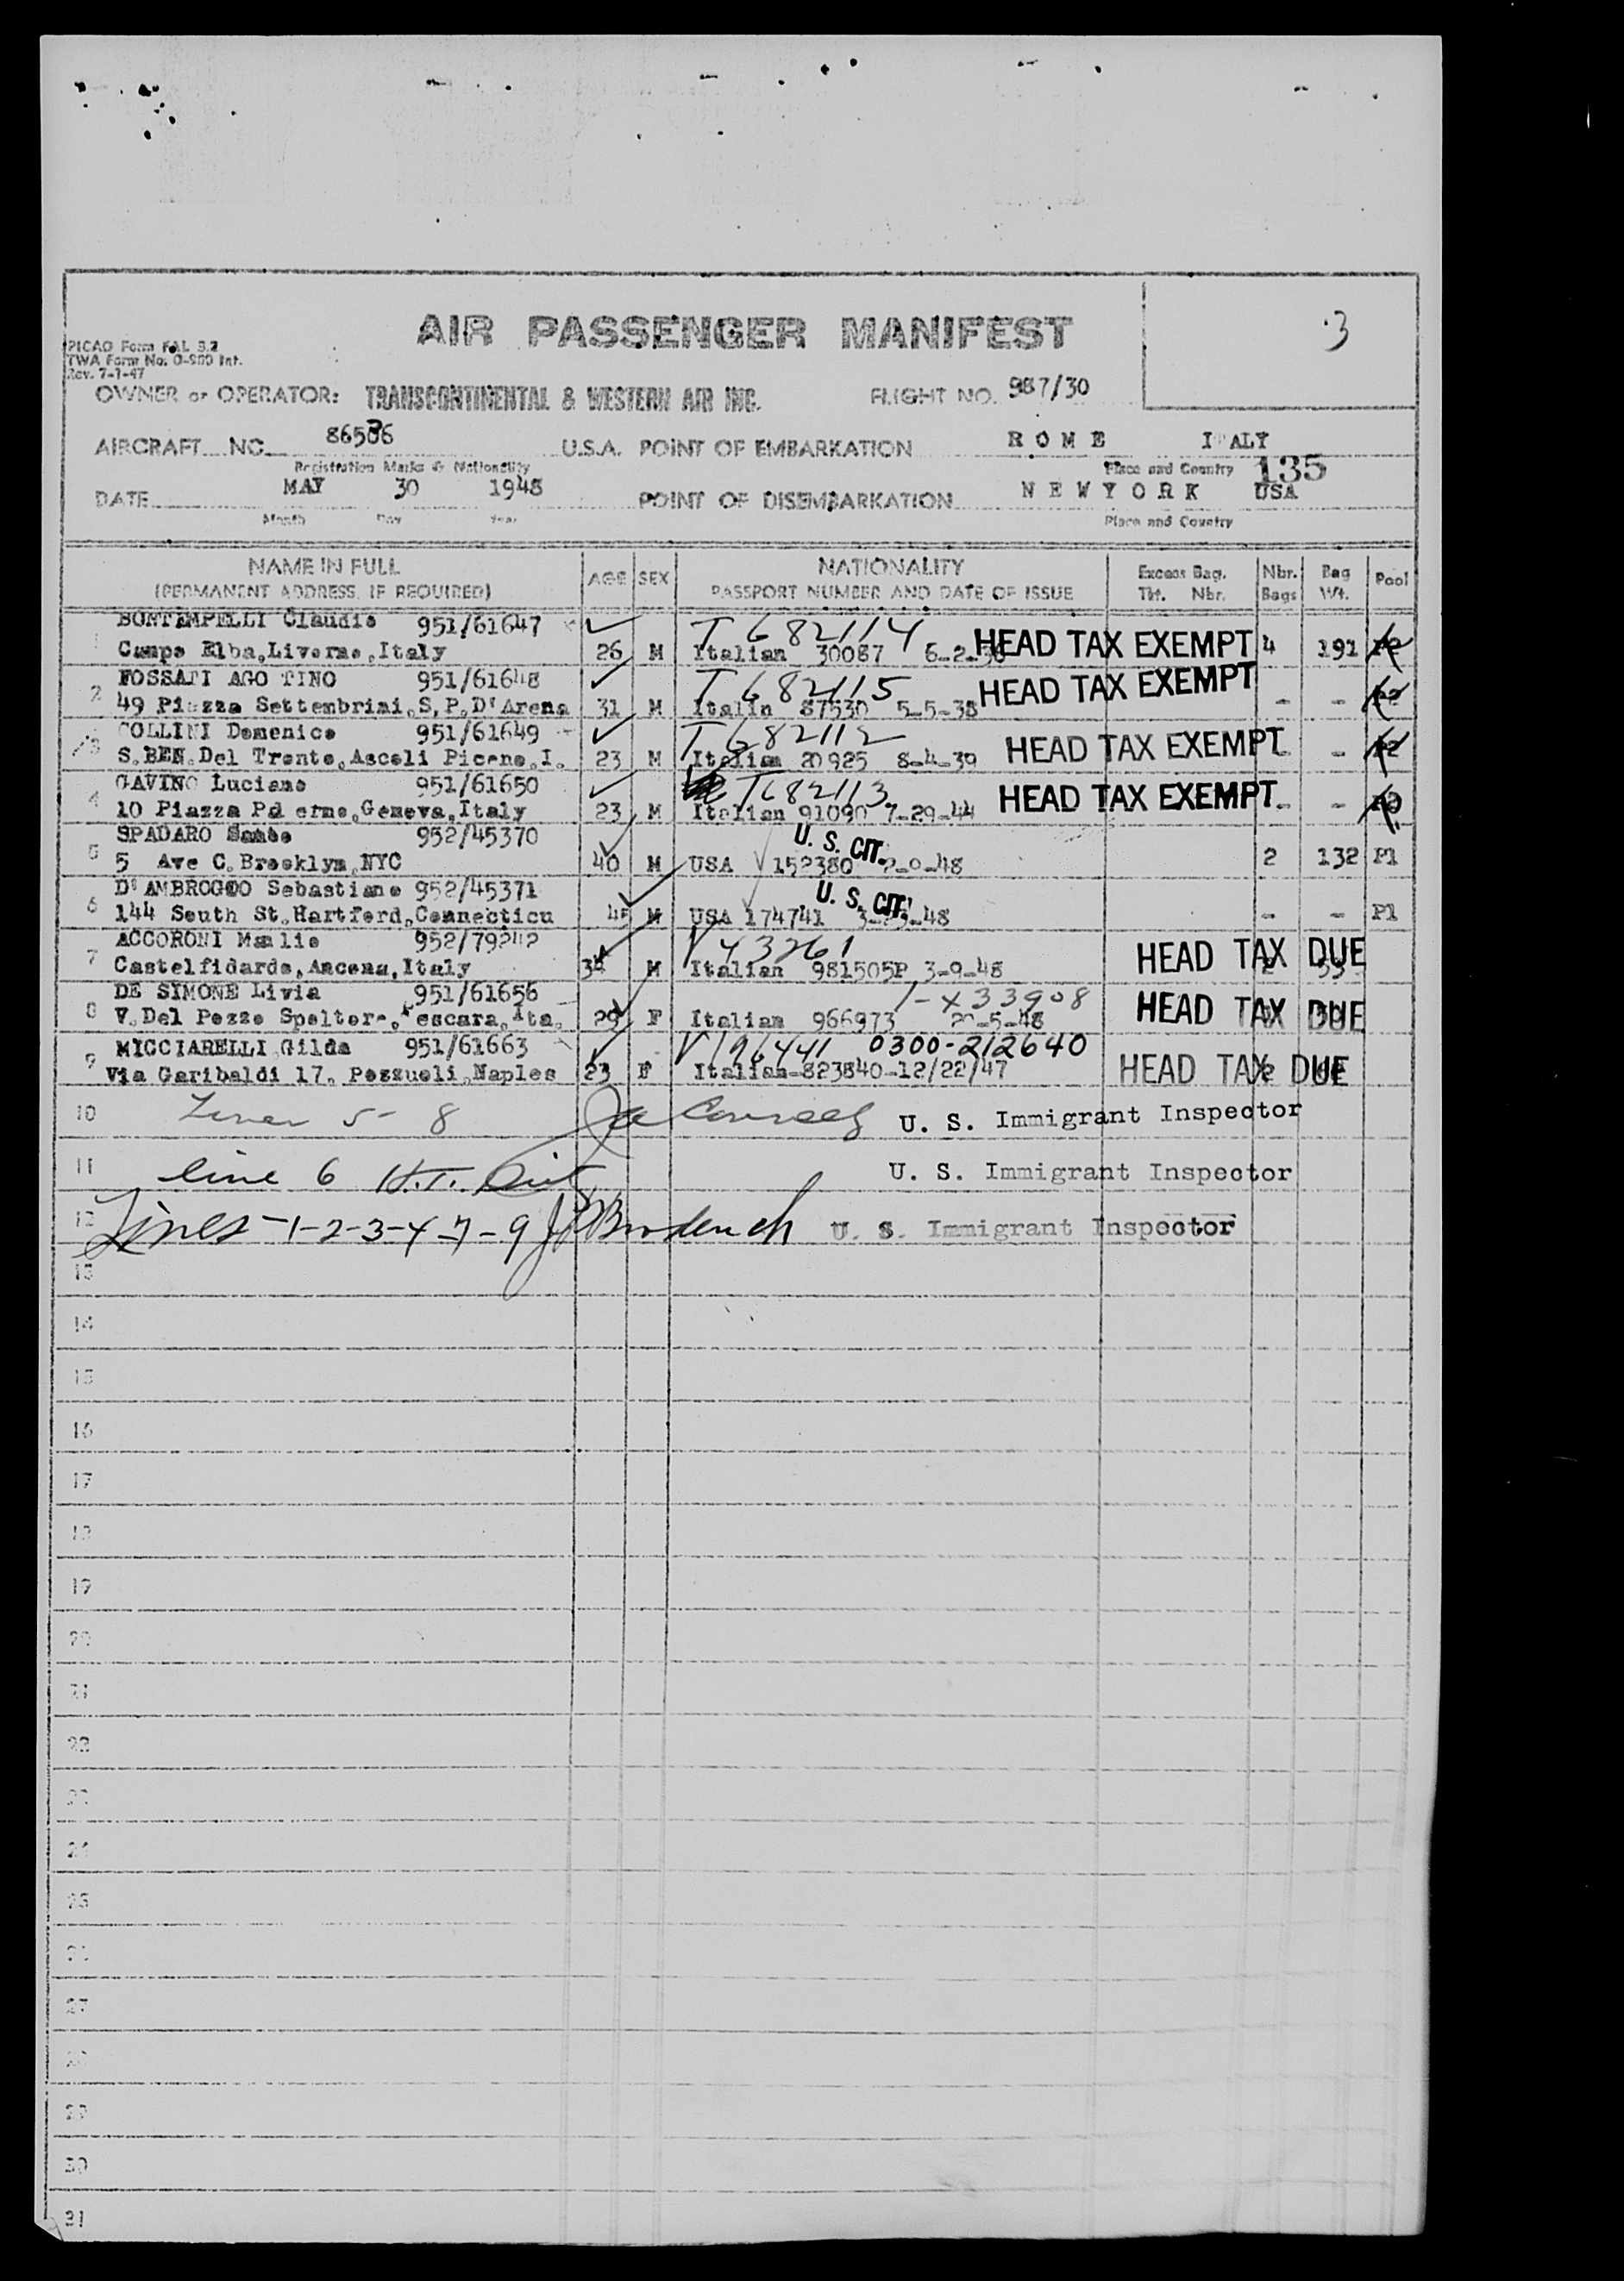 AIR PASSENGER MANIFEST
3
PICAO Form FAL 3.2
TWA Form No. O-980 Int.
Rev. 7-1-47
OWNER or OPERATOR: TRANSCONTINENTAL & WESTERN AIR INC. FLIGHT NO. 987/30
AIRCRAFT NO. U.S.A. POINT OF EMBARKATION ROME ITALY
Registration Marks & Nationality Place and Country 135
DATE MAY 30 1948 POINT OF DISEMBARKATION NEW YORK USA
Month Day Year Place and Country
NAME IN FULL AGE SEX NATIONALITY Excess Bag. Nbr. Bag Pool
(PERMANENT ADDRESS, IF REQUIRED) PASSPORT NUMBER AND DATE OF ISSUE Tkt. Nbr. Bags Wt.
1 BONTEMPELLI Claudio 951/61647 T 682114 HEAD TAX EXEMPT
Campo Elba, Livorno, Italy 26 M Italian 30087 4 191
2 FOSSATI AGO TINO 951/61648 T 682115 HEAD TAX EXEMPT
49 Piazza Settembrini, S,P,D'Arena 31 M Italin 87530 5-5-38 - -
3 COLLINI Domenico 951/61649 T 682112 HEAD TAX EXEMPT
S.BEN.Del Tronto, Ascoli Piceno, I. 23 M Italian 20925 8-4-39 -
4 GAVINO Luciano 951/61650 T682113 HEAD TAX EXEMPT
10 Piazza Pal ermo, Genova, Italy 23 M Italian 91090 7-29-44 - -
5 SPADARO Santo 952/45370 U. S. CIT.
5 Ave C. Brooklyn, NYC 40 M USA 152380 2 132 P1
6 D'AMBROGIO Sebastiano 952/45371 U. S. CIT.
144 South St. Hartford, Connecticu 45 M USA 174741 - - P1
7 ACCORONI Manlio 952/79242 V 43261 HEAD TAX DUE
Castelfidardo, Ancona, Italy 34 M Italian 981505P 3-9-48
8 DE SIMONE Livia 951/61656 I-X33908 HEAD TAX DUE
V. Del Pozzo Spoltore, Pescara, Ita. 29 F Italian 966973 20-5-48
9 MICCIARELLI Gilda 951/61663 V196441 0300-212640
Via Garibaldi 17, Pozzuoli, Naples 23 F Italian-823840-12/22/47 HEAD TAX DUE
10 5 - 8 U. S. Immigrant Inspector
11 line 6 H.T. U. S. Immigrant Inspector
12 Lines -1-2-3-4-7-9 U. S. Immigrant Inspector
13
14
15
16
17
18
19
20
21
22
23
24
25
26
27
28
29
30
31